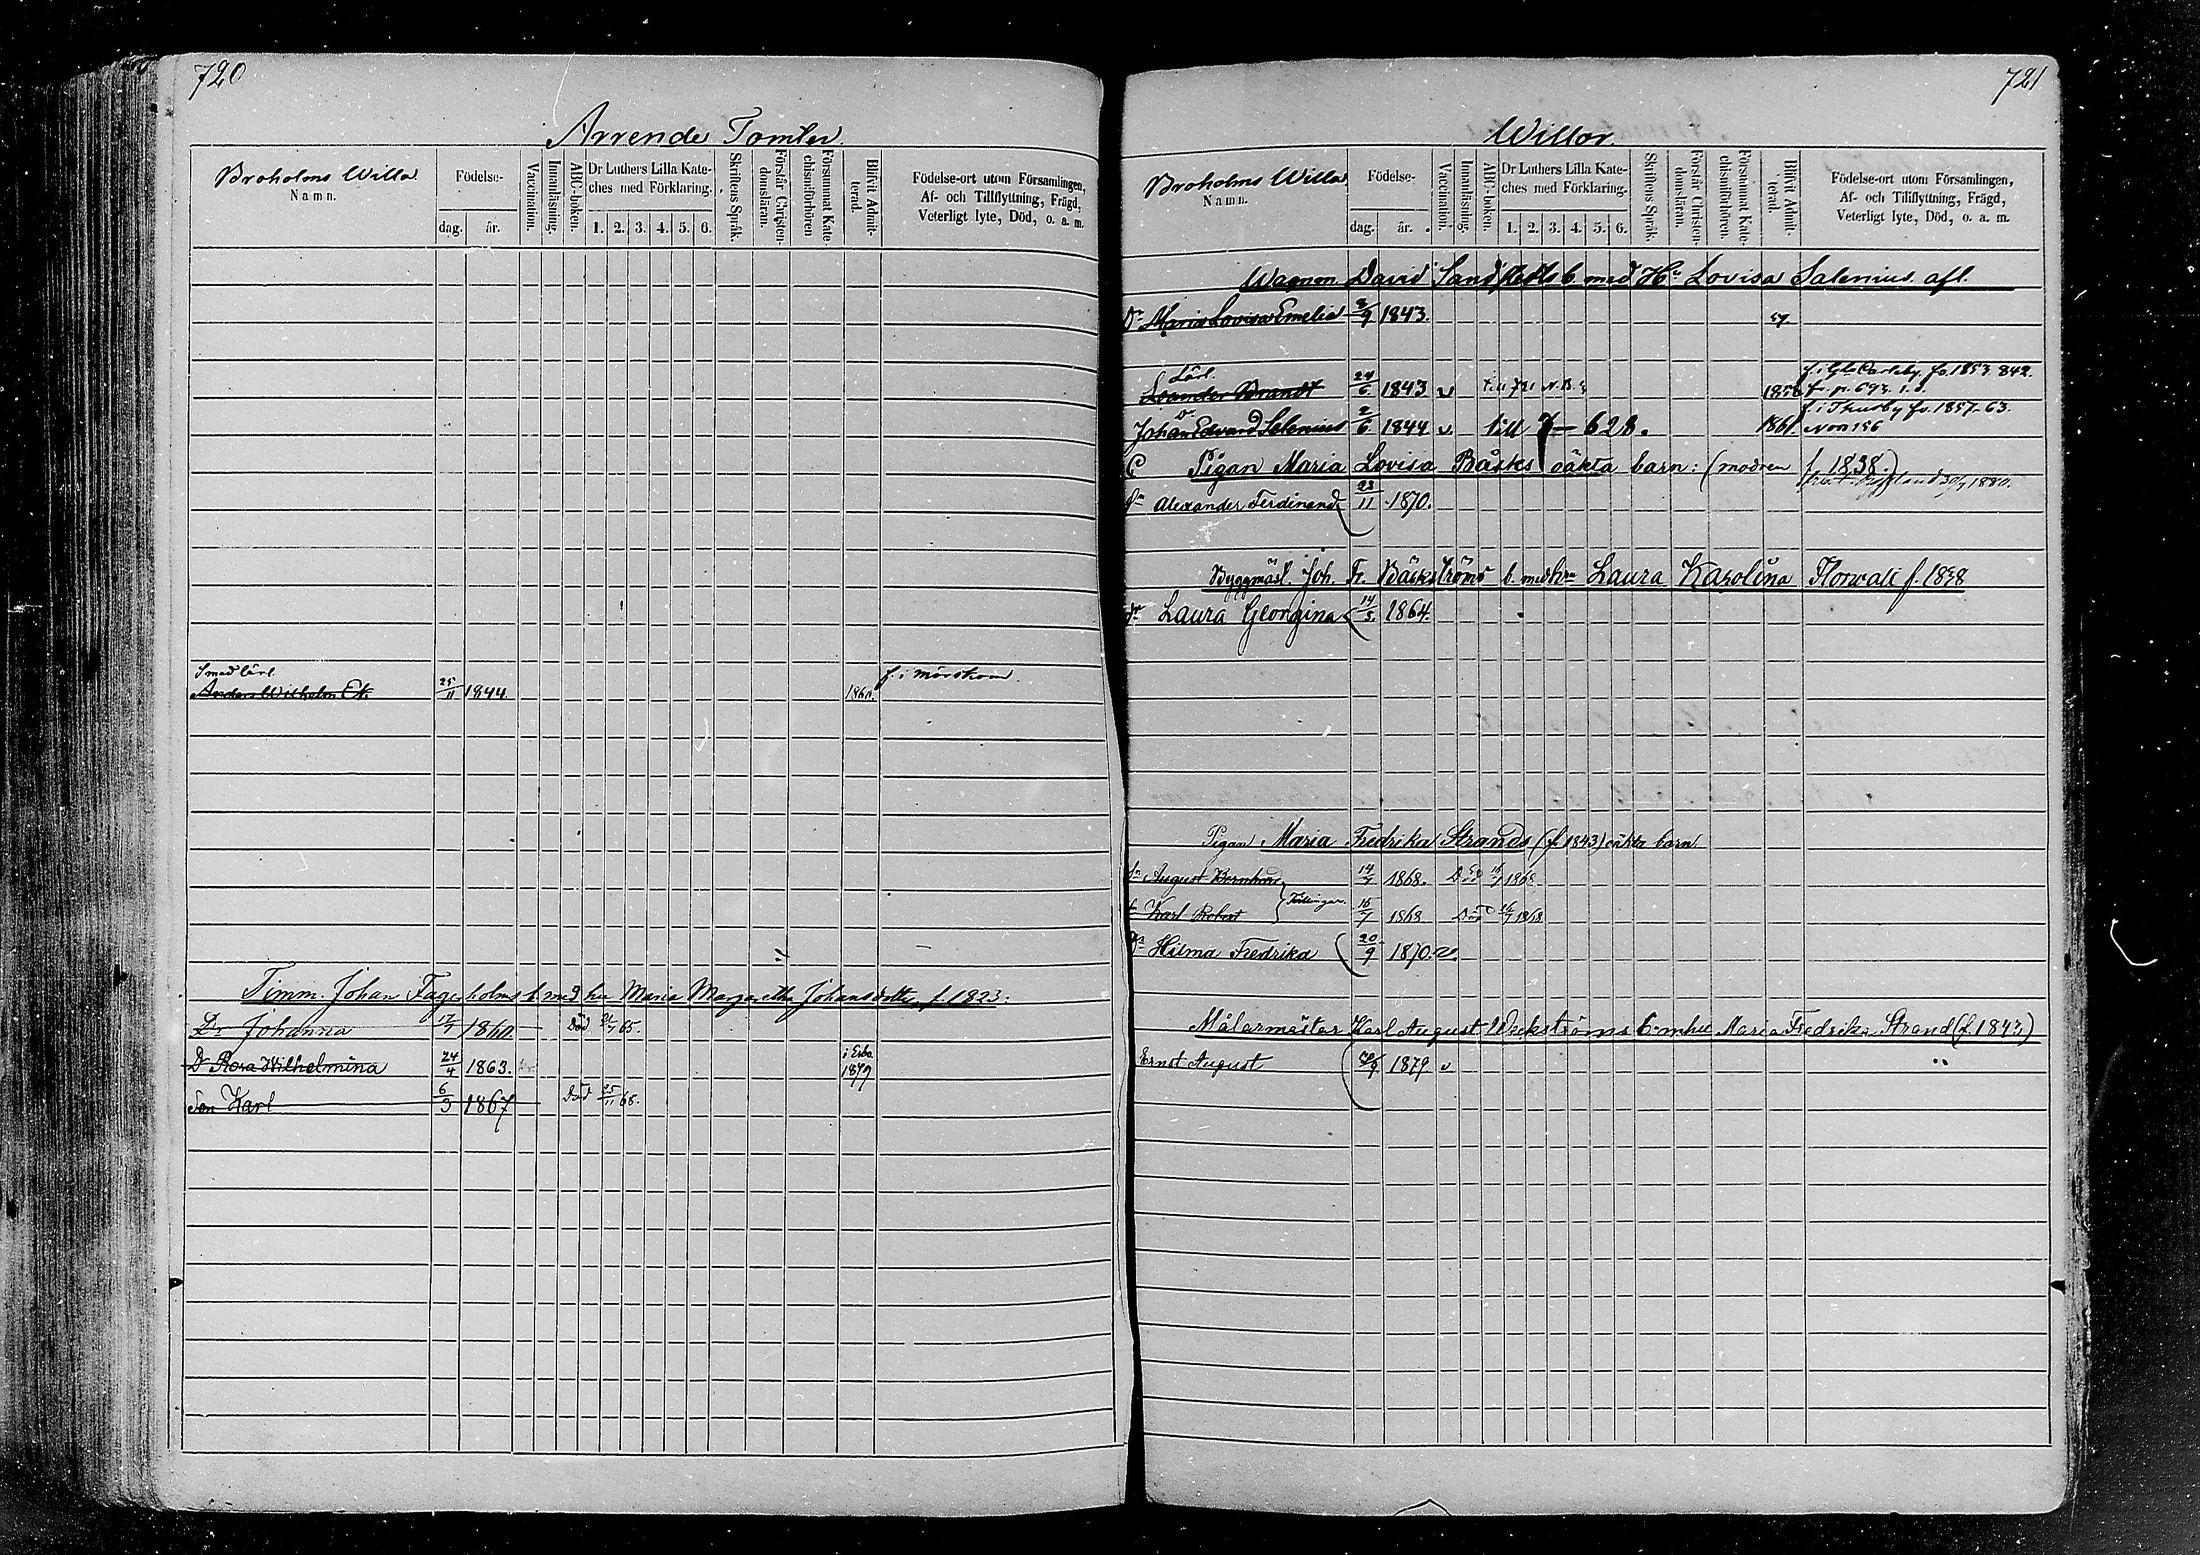 720
Arrende Tomter.
Broholms Willa
Namn.
Födelse-
dag. år.
Vaccination.
Innanläsning.
ABC-boken.
Dr Luthers Lilla Kate-
ches med Förklaring.
1. 2. 3. 4. 5. 6.
Skriftens Språk.
Förstår Christen-
domsläran.
Försummat Kate-
chismiförhören
Blifvit Admit-
terad.
Födelse-ort utom Församlingen,
Af- och Tillflyttning, Frägd,
Veterligt lyte, Död, o. a. m.
Smedlärl. f. i Mörskom.
Anders Wilhelm Ek. 25/11 1844. 1860.
Timm. Johan Fagerholms b. med hu Maria Margaretha Johansdotter f. 1823.
Dr Johanna 17/7 1860 Död 21/7 65.
Dr Rosa Wilhelmina 24/4 1863. i Esbo 1879
Son Karl 6/3 1867 Död 25/11 68.
721
Willor.
Broholms Willa
Namn.
Födelse-
dag. år.
Vaccination.
Innanläsning.
ABC-boken.
Dr Luthers Lilla Kate-
ches med Förklaring.
1. 2. 3. 4. 5. 6.
Skriftens Språk.
Förstår Christen-
domsläran.
Försummat Kate-
chismiförhören.
Blifvit Admit-
terad.
Födelse-ort utom Församlingen,
Af- och Tillflyttning, Frägd,
Veterligt lyte, Död, o. a. m.
David Sand b med Hu Lovisa Salenius afl.
Dr Maria Lovisa Emelia 1843. 57.
Lärl. f. i Gb Carleby fo. 1853 842.
Leander Brandt 24/6 1843 v till 721 N.B. fr. p. 693. i. d.
f. i Thusby fo. 1857-63.
Johan Edvard Selenius 2/6 1844 v. till 7-628. 1861. N:o 156
Pigan Maria Lovisa Bäsks oäkta barn: (modren f. 1838.)
30/9 1880.
Sn Alexander Ferdinand 23/11 1870.
Byggmäst. Joh. Fr. Bäckströms b. med hu Laura Karolina f. 1838
dr Laura Georgina 14/5. 1864.
Pigan Maria Fredrika Strands (f. 1843) oäkta barn
Sn August Bernhard 14/7 1868. Död 1868
Sn Karl Robert Tvillingar. 1868 Död 1868
Dr Hilma Fredrika 20/9 1870. v.
Målarmästar Karl August Weckströms b. m hu Maria Fredrika Strand (f. 1843)
Ernst August 1879 v